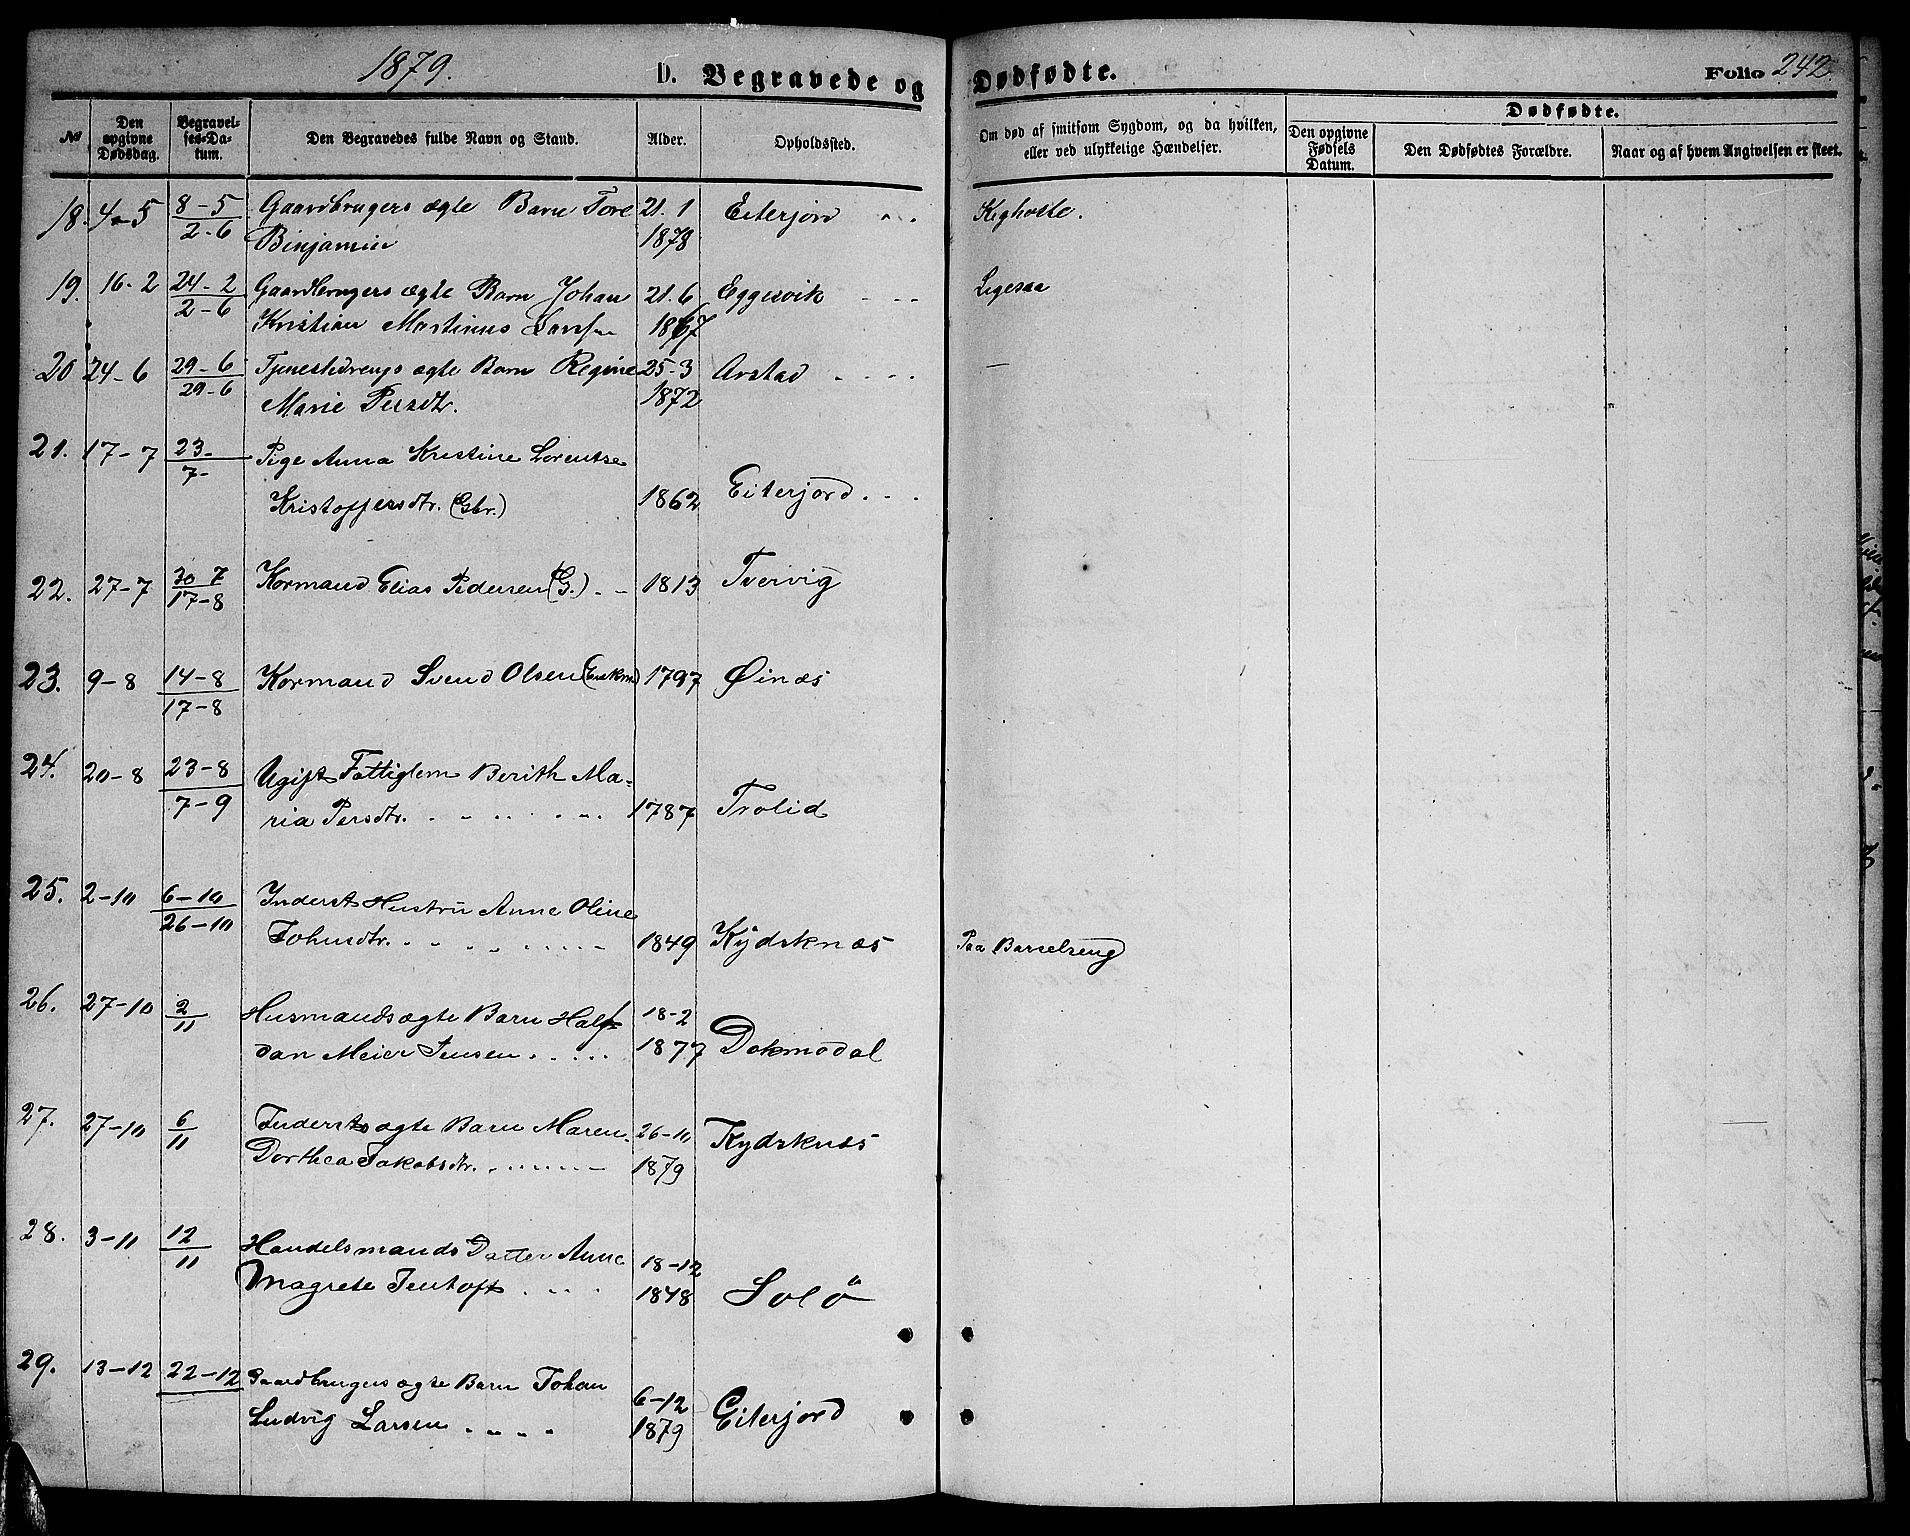 1879.
D. Begravede og Dødfødte.
Folio 242.
№
Den opgivne Dødsdag.
Begravelses-Datum.
Den Begravedes fulde Navn og Stand.
Alder.
Opholdssted.
Om død af smitsom Sygdom, og da hvilken, eller ved ulykkelige Hændelser.
Dødfødte.
Den opgivne Fødsels Datum.
Den Dødfødtes Forældre.
Naar og af hvem Angivelsen er skeet.
18. 4-5 8-5 Gaardbrugers ægte Barn Tore 21.1 Eiterjord Kighoste.
2-6 Binjamin 1878
19. 16-2 24-2 Gaardbrugers ægte Barn Johan 21.6 Eggesvik Ligesaa
2-6 Kristian Martinus Larsen 1867
20 24-6 29-6 Tjenestedrengs ægte Barn Regine 25-3 Arstad —
29-6 Marie Persdtr. 1872
21. 17-7 23- Pige Anna Kristine Lorentse
7- Kristoffersdtr. (Gbr.) 1862 Eiterjord
22. 27-7 30 7 Kormand Elias Pedersen (G.) 1813 Tvervig
17-8
23. 9-8 14-8 Kormand Svend Olsen (Enkm) 1797 Øinæs
17-8
24. 20-8 23-8 Ugift Fattiglem Berith Ma-
7-9 ria Persdtr. 1787 Trolid
25. 2-10 6-10 Inderst Hustru Anne Oline
26-10 Johnsdtr. 1849 Kjdsknæs Paa Barselseng
26. 27-10 2 Husmands ægte Barn Half- 18-2
11 dan Meier Jensen 1877 Dokmodal
27. 27-10 6 Inderst ægte Barn Maren 26-10 Kydsknæs
11 Dorthea Jakobsdtr. 1879
28. 3-11 12 Handelsmands Datter Anne 18-12
11 Magrete Jentoft 1848 Solö
29. 13-12 22-12 Gaardbrugers ægte Barn Johan 6-12 Eiterjord
Ludvig Larsen 1879